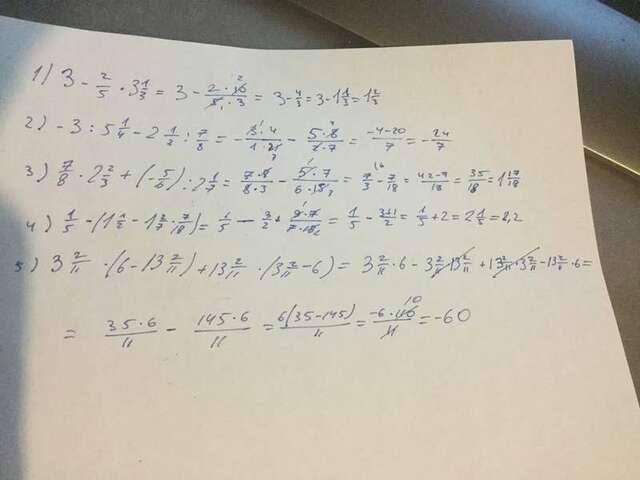 1) 3 - 2/5 · 3 1/3 = 3 - (2 · 10)/(5 · 3) = 3 - 4/3 = 3 - 1 1/3 = 1 2/3
2) -3 : 5 1/4 - 2 1/2 : 7/8 = - (3 · 4)/(1 · 21) - (5 · 8)/(2 · 7) = (-4-20)/7 = - 24/7
3) 7/8 · 2 2/3 + (- 5/6) : 2 1/7 = (7 · 8)/(8 · 3) - (5 · 7)/(6 · 15) = 7/3 - 7/18 = (42-7)/18 = 35/18 = 1 17/18
4) 1/5 - (1 1/2 - 1 2/7 · 7/18) = 1/5 - 3/2 + (9 · 7)/(7 · 18) = 1/5 - (3+1)/2 = 1/5 + 2 = 2 1/5 = 2,2
5) 3 2/11 · (6 - 13 2/11) + 13 2/11 · (3 2/11 - 6) = 3 2/11 · 6 - 3 2/11 · 13 2/11 + 13 2/11 · 3 2/11 - 13 2/11 · 6 =
= (35 · 6)/11 - (145 · 6)/11 = 6(35-145)/11 = (-6 · 110)/11 = -60